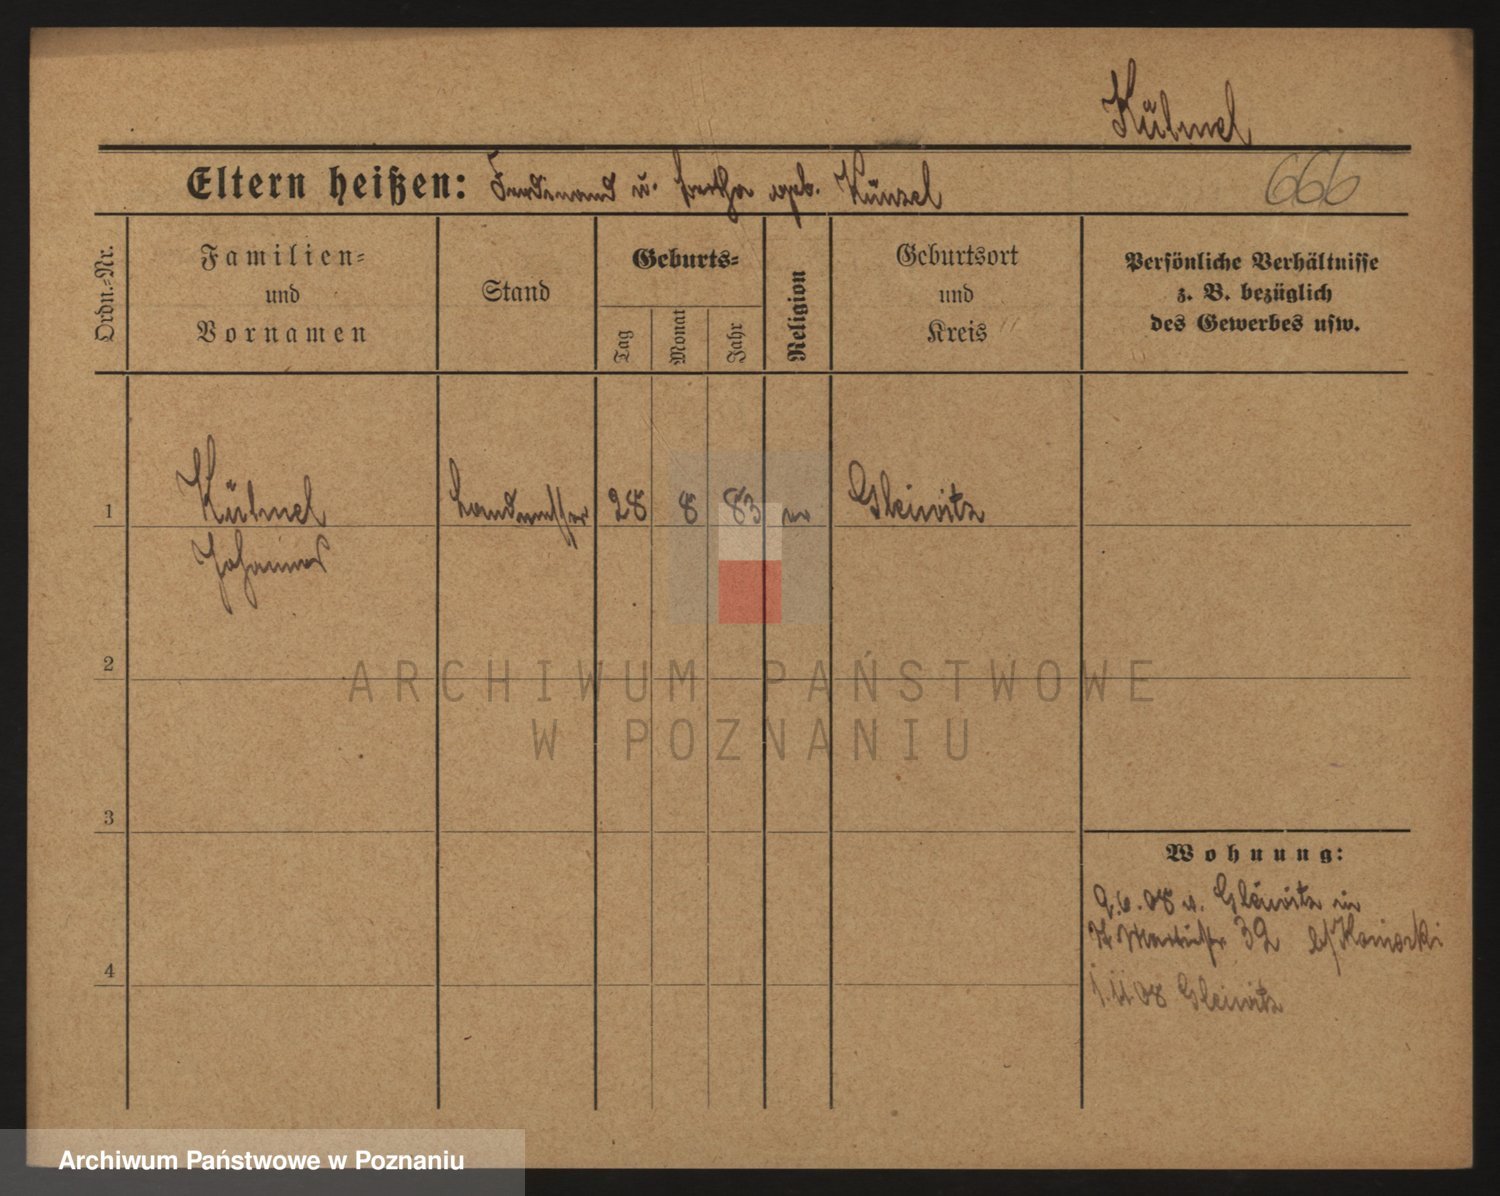 Kühnel
Eltern heißen: Ferdinand u. Hertha geb. Künzel
666
Ordn.-Nr.
Familien-
und
Vornamen
Stand
Geburts-
Tag
Monat
Jahr
Religion
Geburtsort
und
Kreis
Persönliche Verhältnisse
z. B. bezüglich
des Gewerbes usw.
1
Kühnel
Johannes
Landmesser
28
8
83
ev
Gleiwitz
2
ARCHIWUM PAŃSTWOWE
W POZNANIU
3
4
Wohnung:
9.6.08 v. Gleiwitz in
St Martinstr 39 b/
1.11.08 Gleiwitz
Archiwum Państwowe w Poznaniu